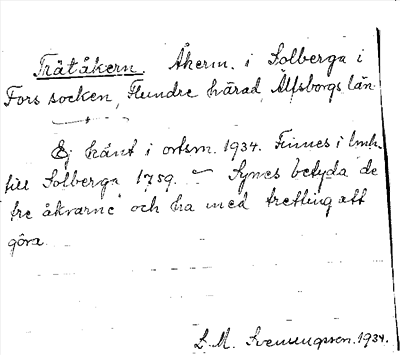 Trätåkern. Åkern. i Solberga i
Fors socken, Flundre härad, Älfsborgs län.
Ej känt i ortsm. 1934. Finnes i lmh.
till Solberga 1759. — Synes betyda "de
tre åkrarne" och ha med tretting att
göra.
L. M. Svenungsson. 1934.